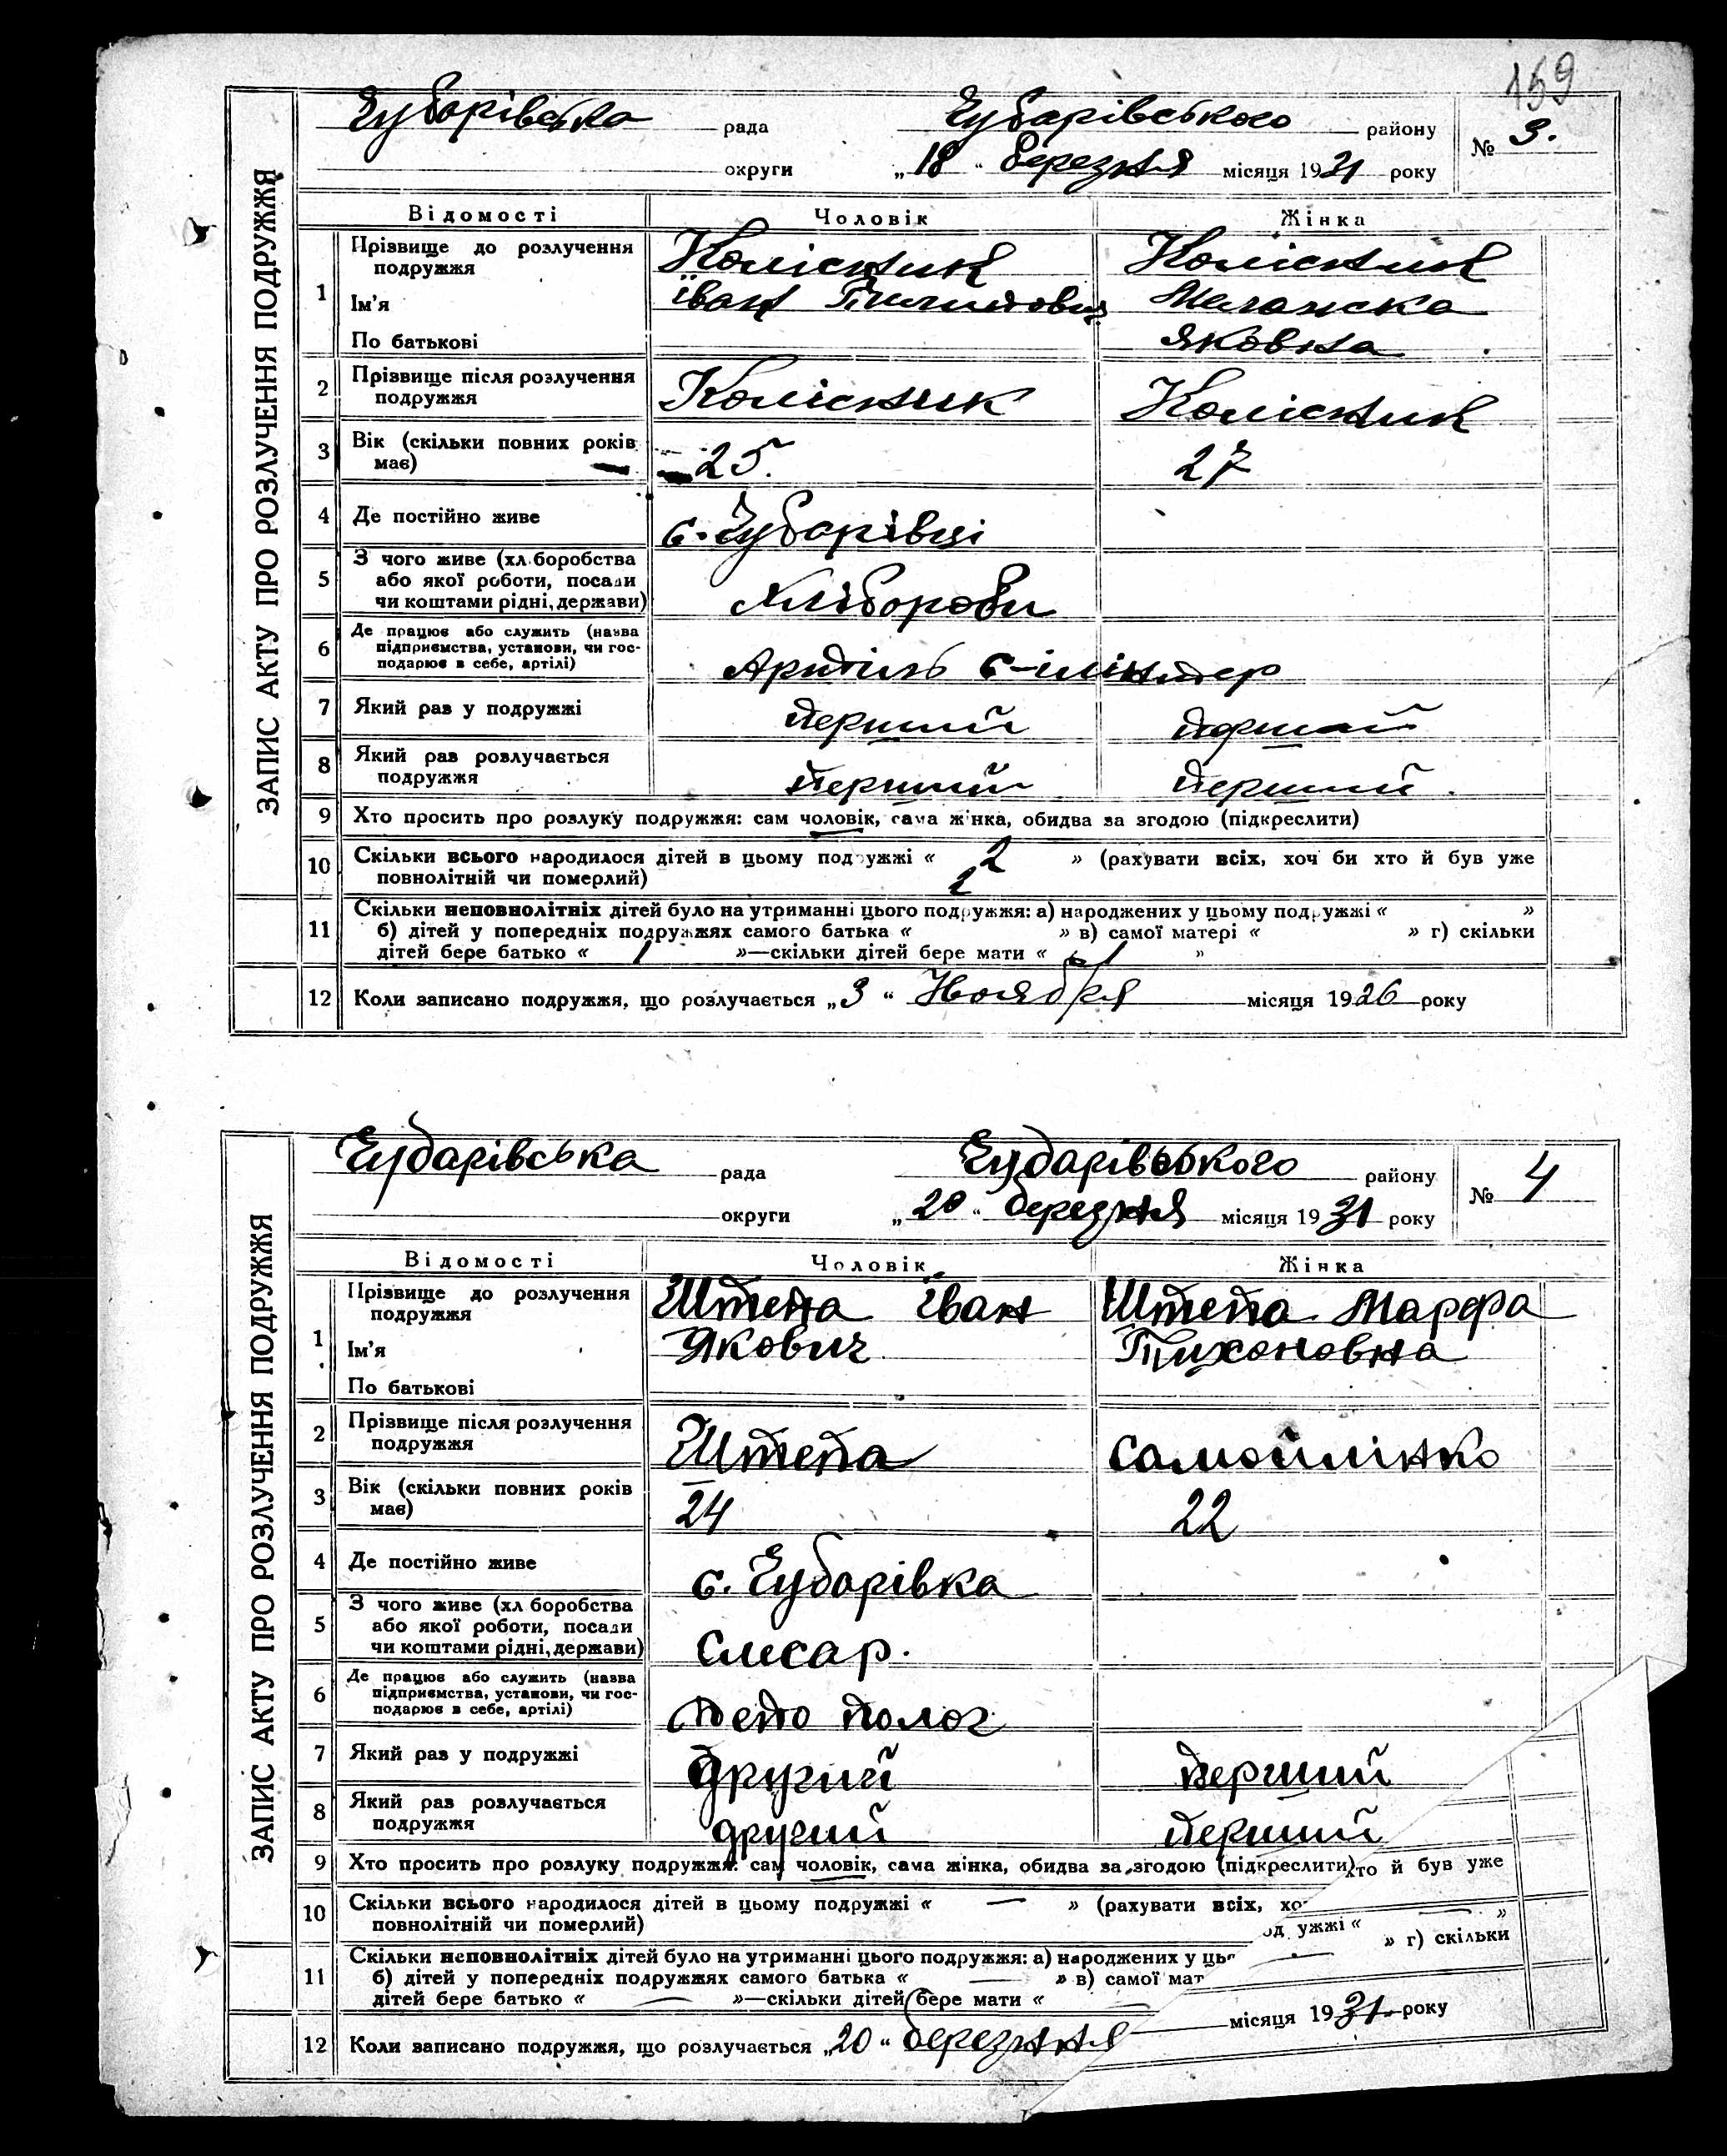 159
Чубарівська рада Чубарівського району № 3.
округи „18“ березня місяця 1931 року
ЗАПИС АКТУ ПРО РОЗЛУЧЕННЯ ПОДРУЖЖЯ
Відомості Чоловік Жінка
1 Прізвище до розлучення подружжя Колісник Колісник
Ім'я іван Пилипович Меланска
По батькові Яковна
2 Прізвище після розлучення подружжяКолісник Колісник
3 Вік (скільки повних років має) 25. 27
4 Де постійно живе с. Чубарівці
5 З чого живе (хл боробства
або якої роботи, посади
чи коштами рідні, держави) Хлібороби
6 Де працює або служить (назва
підприємства, установи, чи гос-
подарює в себе, артілі) Артіль
7 Який раз у подружжі перший перший
8 Який раз розлучається подружжя перший перший
9 Хто просить про розлуку подружжя: сам чоловік, сама жінка, обидва за згодою (підкреслити)
10 Скільки всього народилося дітей в цьому подружжі « 2 » (рахувати всіх, хоч би хто й був уже
повнолітній чи померлий) 2
11 Скільки неповнолітніх дітей було на утриманні цього подружжя: а) народжених у цьому подружжі « »
б) дітей у попередніх подружжях самого батька « » в) самої матері « » г) скільки
дітей бере батько « 1 »—скільки дітей бере мати « 1 »
12 Коли записано подружжя, що розлучається „3“ Ноября місяця 1926 року
Чубарівська рада Чубарівського району № 4
округи „20“ березня місяця 1931 року
ЗАПИС АКТУ ПРО РОЗЛУЧЕННЯ ПОДРУЖЖЯ
Відомості Чоловік Жінка
1 Прізвище до розлучення подружжя Штепа іван Штепа Марфа
Ім'я Якович Тихоновна
По батькові
2 Прізвище після розлучення подружжя Штепа Самойлінко
3 Вік (скільки повних років має) 24 22
4 Де постійно живе с. Чубарівка
5 З чого живе (хл боробства
або якої роботи, посади
чи коштами рідні, держави) Слесар.
6 Де працює або служить (назва
підприємства, установи, чи гос-
подарює в себе, артілі) Депо полог
7 Який раз у подружжі другий перший
8 Який раз розлучається подружжя другий перший
9 Хто просить про розлуку подружжя: сам чоловік, сама жінка, обидва за згодою (підкреслити)
хто й був уже
10 Скільки всього народилося дітей в цьому подружжі « — » (рахувати всіх, хо
повнолітній чи померлий)
од ужжі « — »
11 Скільки неповнолітніх дітей було на утриманні цього подружжя: а) народжених у ць
» г) скільки
б) дітей у попередніх подружжях самого батька « — » в) самої мат
дітей бере батько « — »—скільки дітей бере мати «
12 Коли записано подружжя, що розлучається „20“ березня місяця 1931 року